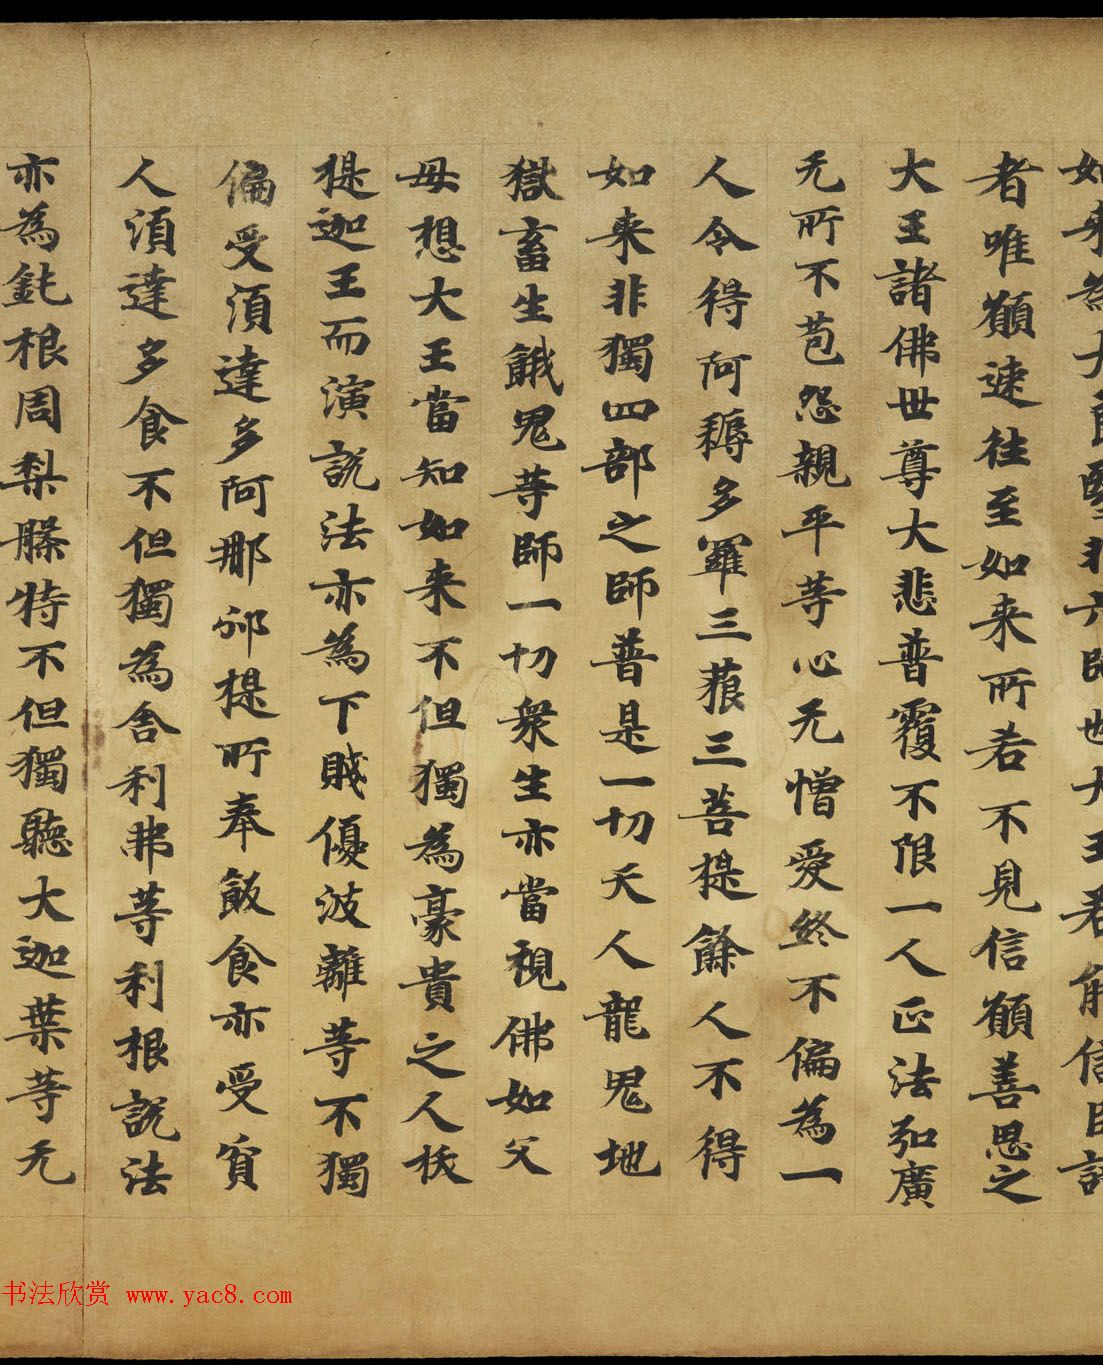 如来為大良醫非六師也大王若能信臣語
者唯願速往至如来所若不見信願善思之
大王諸佛世尊大悲普覆不限一人正法弘廣
无所不苞怨親平等心无憎愛終不偏為一
人令得阿耨多羅三藐三菩提餘人不得
如来非獨四部之師普是一切天人龍鬼地
獄畜生餓鬼等師一切衆生亦當視佛如父
母想大王當知如来不但獨為豪貴之人柭
提迦王而演説法亦為下賤優波離等不獨
偏受湏達多阿那邠提所奉飯食亦受貧
人湏達多食不但獨為舍利弗等利根説法
亦為鈍根周梨槃特不但獨聽大迦葉等无
书法欣赏 www.yac8.com